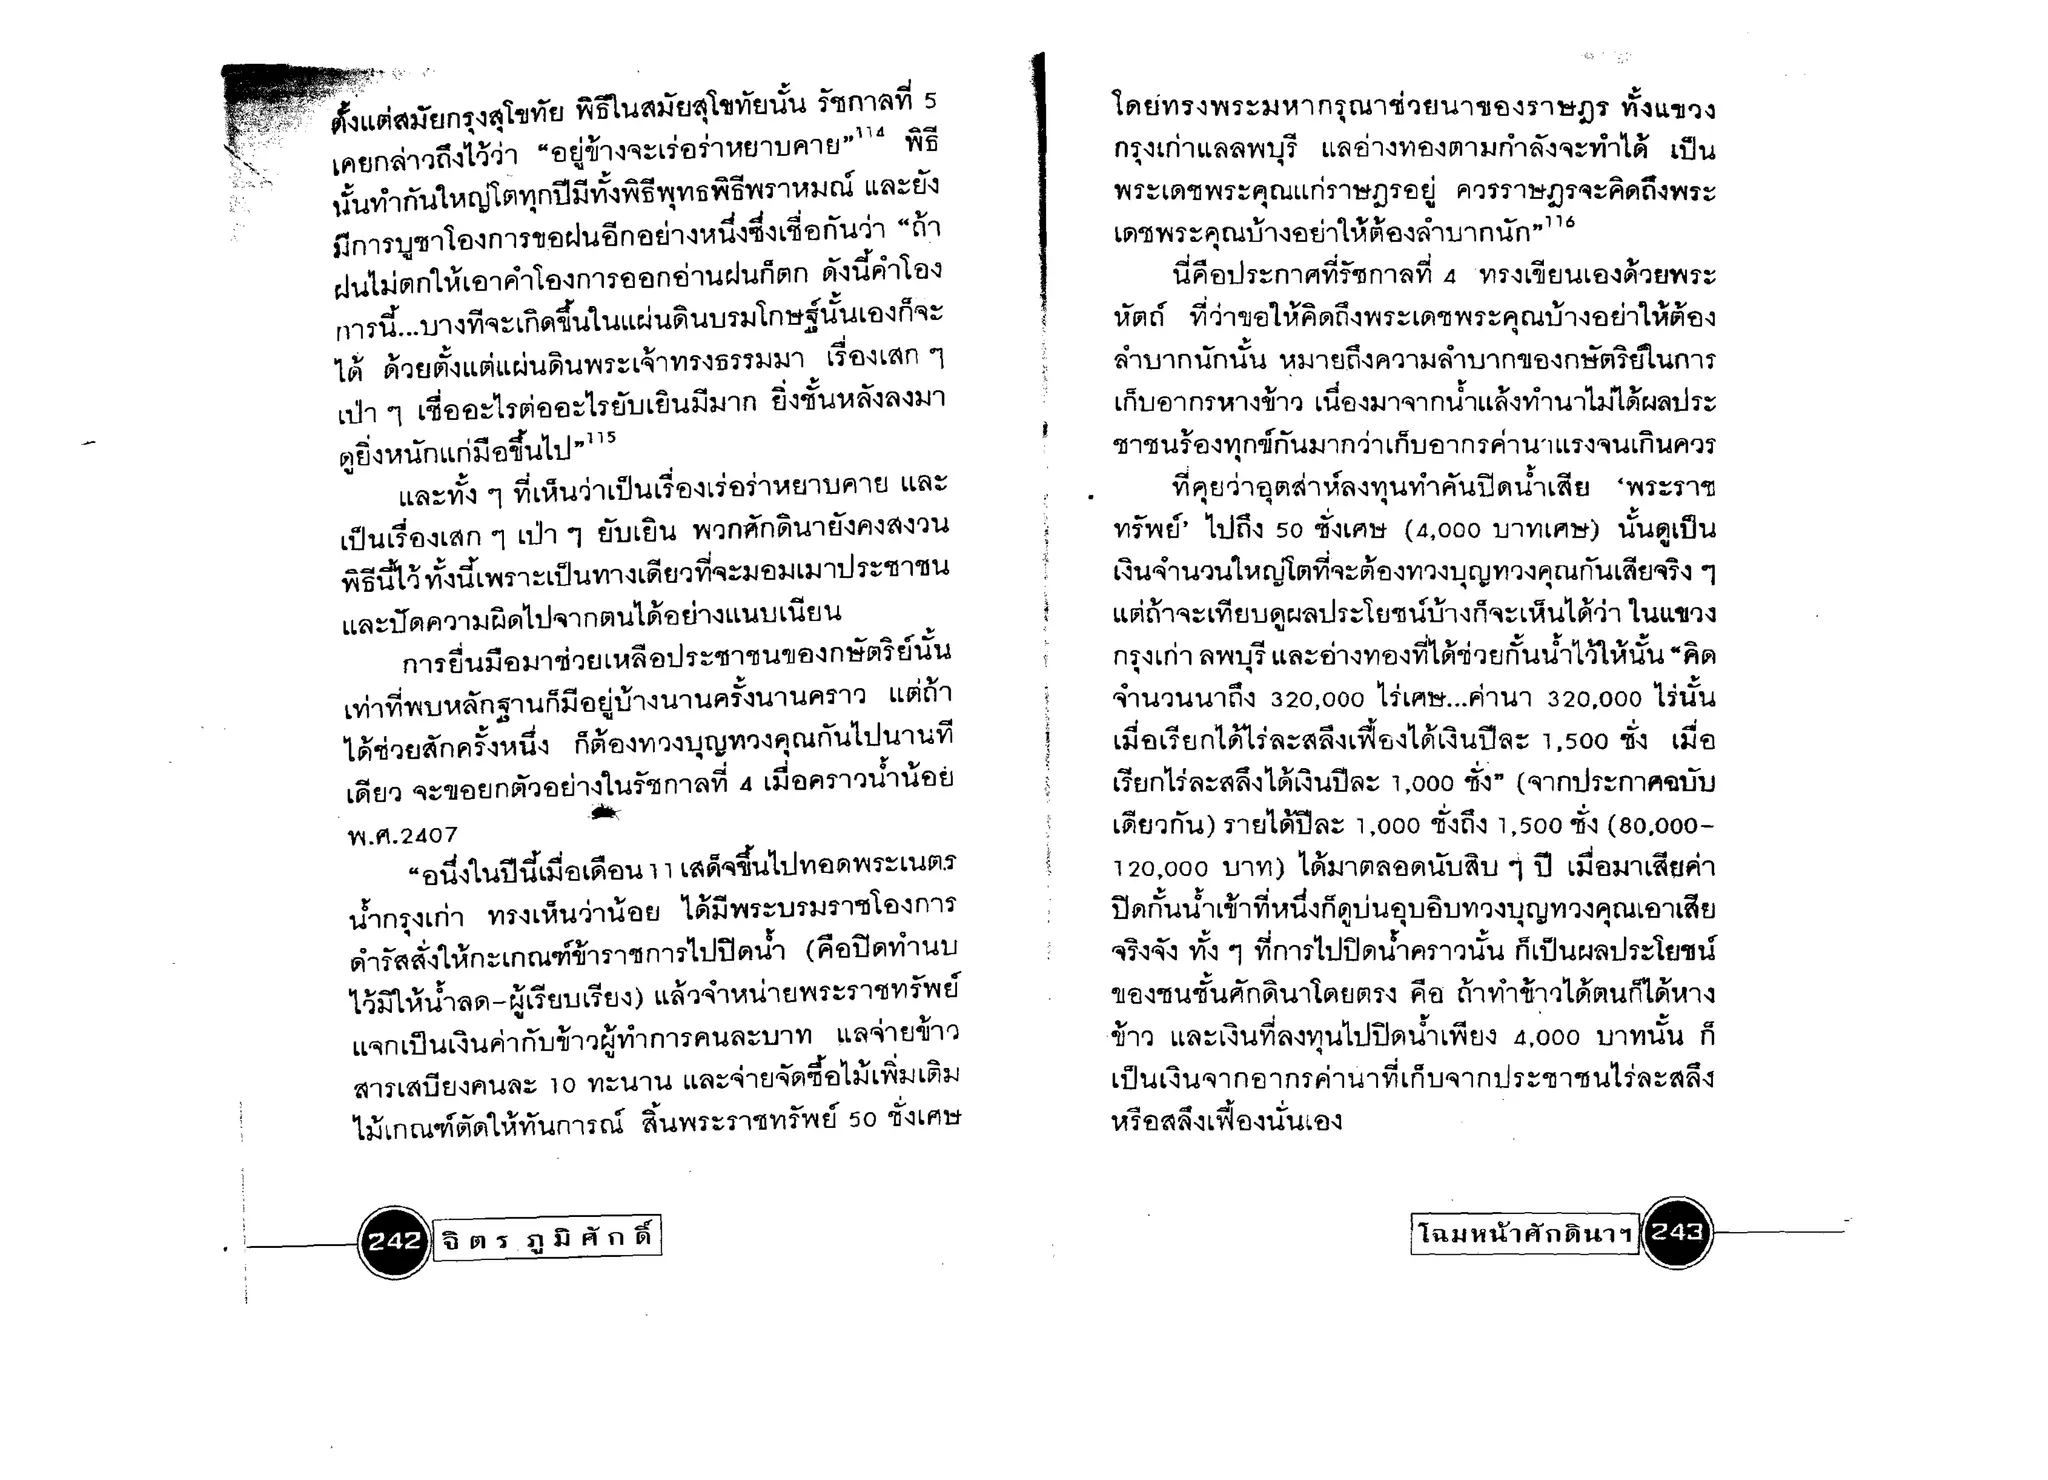 ตั้งแต่สมัยกรุงสุโขทัย พิธีในสมัยสุโขทัยนั้น รัชกาลที่ 5
เคยกล่าวถึงไว้ว่า “อยู่ข้างจะเร่อร่าหยาบคาย”114 พิธี
นั้นทำกันใหญ่โตทุกปีมีทั้งพิธีพุทธพิธีพราหมณ์ และยัง
มีการบูชาโองการขอฝนอีกอย่างหนึ่งซึ่งเชื่อกันว่า “ถ้า
ฝนไม่ตกให้เอาคำโองการออกอ่านฝนก็ตก ดังนี้คำโอง
การนี้...บางทีจะเกิดขึ้นในแผ่นดินบรมโกษฐ์นั้นเองก็จะ
ได้ ด้วยตั้งแต่แผ่นดินพระเจ้าทรงธรรมมา เรื่องเสก ๆ
เป่า ๆ เชื่ออะไรต่ออะไรยับเยินมีมาก ยิ่งชั้นหลังลงมา
ดูยิ่งหนักแก่มือขึ้นไป”115
และทั้ง ๆ ที่เห็นว่าเป็นเรื่องเร่อร่าหยาบคาย และ
เป็นเรื่องเสก ๆ เป่า ๆ ยับเยิน พวกศักดินายังคงสงวน
พิธีนี้ไว้ ทั้งนี้เพราะเป็นทางเดียวที่จะมอมเมาประชาชน
และปัดความผิดไปจากตนได้อย่างแนบเนียน
การยื่นมือมาช่วยเหลือประชาชนของกษัตริย์นั้น
เท่าที่พบหลักฐานก็มีอยู่บ้างนานครั้งนานคราว แต่ถ้า
ได้ช่วยสักครั้งหนึ่ง ก็ต้องทวงบุญทวงคุณกันไปนานที
เดียว จะขอยกตัวอย่างในรัชกาลที่ 4 เมื่อคราวน้ำน้อย
พ.ศ.2407
“อนึ่งในปีนี้เมื่อเดือน 11 เสด็จขึ้นไปทอดพระเนตร
น้ำกรุงเก่า ทรงเห็นว่าน้อย ได้มีพระบรมราชโองการ
ดำรัสสั่งให้กะเกณฑ์ข้าราชการไปปิดน้ำ (คือปิดทำนบ
ไว้มิให้น้ำลด-ผู้เรียบเรียง) แล้วจำหน่ายพระราชทรัพย์
แจกเป็นเงินค่ากับข้าวผู้ทำการคนละบาท แลจ่ายข้าว
สารเสบียงคนละ 10 ทะนาน และจ่ายจัดซื้อไม้เพิ่มเติม
ไม้เกณฑ์ตัดให้ทันการณ์ สิ้นพระราชทรัพย์ 50 ชั่งเศษ
242 จิตร ภูมิศักดิ์
โดยทรงพระมหากรุณาช่วยนาของราษฎร ทั้งแขวง
กรุงเก่าแลลพบุรี แลอ่างทองตามกำลังจะทำได้ เป็น
พระเดชพระคุณแก่ราษฎรอยู่ ควรราษฎรจะคิดถึงพระ
เดชพระคุณบ้างอย่าให้ต้องลำบากนัก”116
นี่คือประกาศที่รัชกาลที่ 4 ทรงเขียนเองด้วยพระ
หัตถ์ ที่ว่าขอให้คิดถึงพระเดชพระคุณบ้างอย่าให้ต้อง
ลำบากนักนั้น หมายถึงความลำบากของกษัตริย์ในการ
เก็บอากรหางข้าว เนื่องมาจากน้ำแล้งทำนาไม่ได้ผลประ
ชาชนร้องทุกข์กันมากว่าเก็บอากรค่านาแรงจนเกินควร
ที่คุยว่าอุตส่าห์ลงทุนทำคันปิดน้ำเสีย ‘พระราช
ทรัพย์’ ไปถึง 50 ชั่งเศษ (4,000 บาทเศษ) นั้นดูเป็น
เงินจำนวนใหญ่โตที่จะต้องทวงบุญทวงคุณกันเสียจริง ๆ
แต่ถ้าจะเทียบดูผลประโยชน์บ้างก็จะเห็นได้ว่า ในแขวง
กรุงเก่า ลพบุรี และอ่างทองที่ได้ช่วยกั้นน้ำไว้ให้นั้น “คิด
จำนวนนาถึง 320,000 ไร่เศษ...ค่านา 320,000 ไร่นั้น
เมื่อเรียกได้ไร่ละสลึงเฟื้องได้เงินปีละ 1,500 ชั่ง เมื่อ
เรียกไร่ละสลึงได้เงินปีละ 1,000 ชั่ง” (จากประกาศฉบับ
เดียวกัน) รายได้ปีละ 1,000 ชั่งถึง 1,500 ชั่ง (80,000-
120,000 บาท) ได้มาตลอดนับสิบ ๆ ปี เมื่อมาเสียค่า
ปิดกั้นน้ำเข้าที่หนึ่งก็ดูบ่นอุบอิบทวงบุญทวงคุณเอาเสีย
จริงจัง ทั้ง ๆ ที่การไปปิดน้ำคราวนั้น ก็เป็นผลประโยชน์
ของชนชั้นศักดินาโดยตรง คือ ถ้าทำข้าวได้ตนก็ได้หาง
ข้าว และเงินที่ลงทุนไปปิดน้ำเพียง 4,000 บาทนั้น ก็
เป็นเงินจากอากรค่านาที่เก็บจากประชาชนไร่ละสลึง
หรือสลึงเฟื้องนั่นเอง
โฉมหน้าศักดินาฯ 243